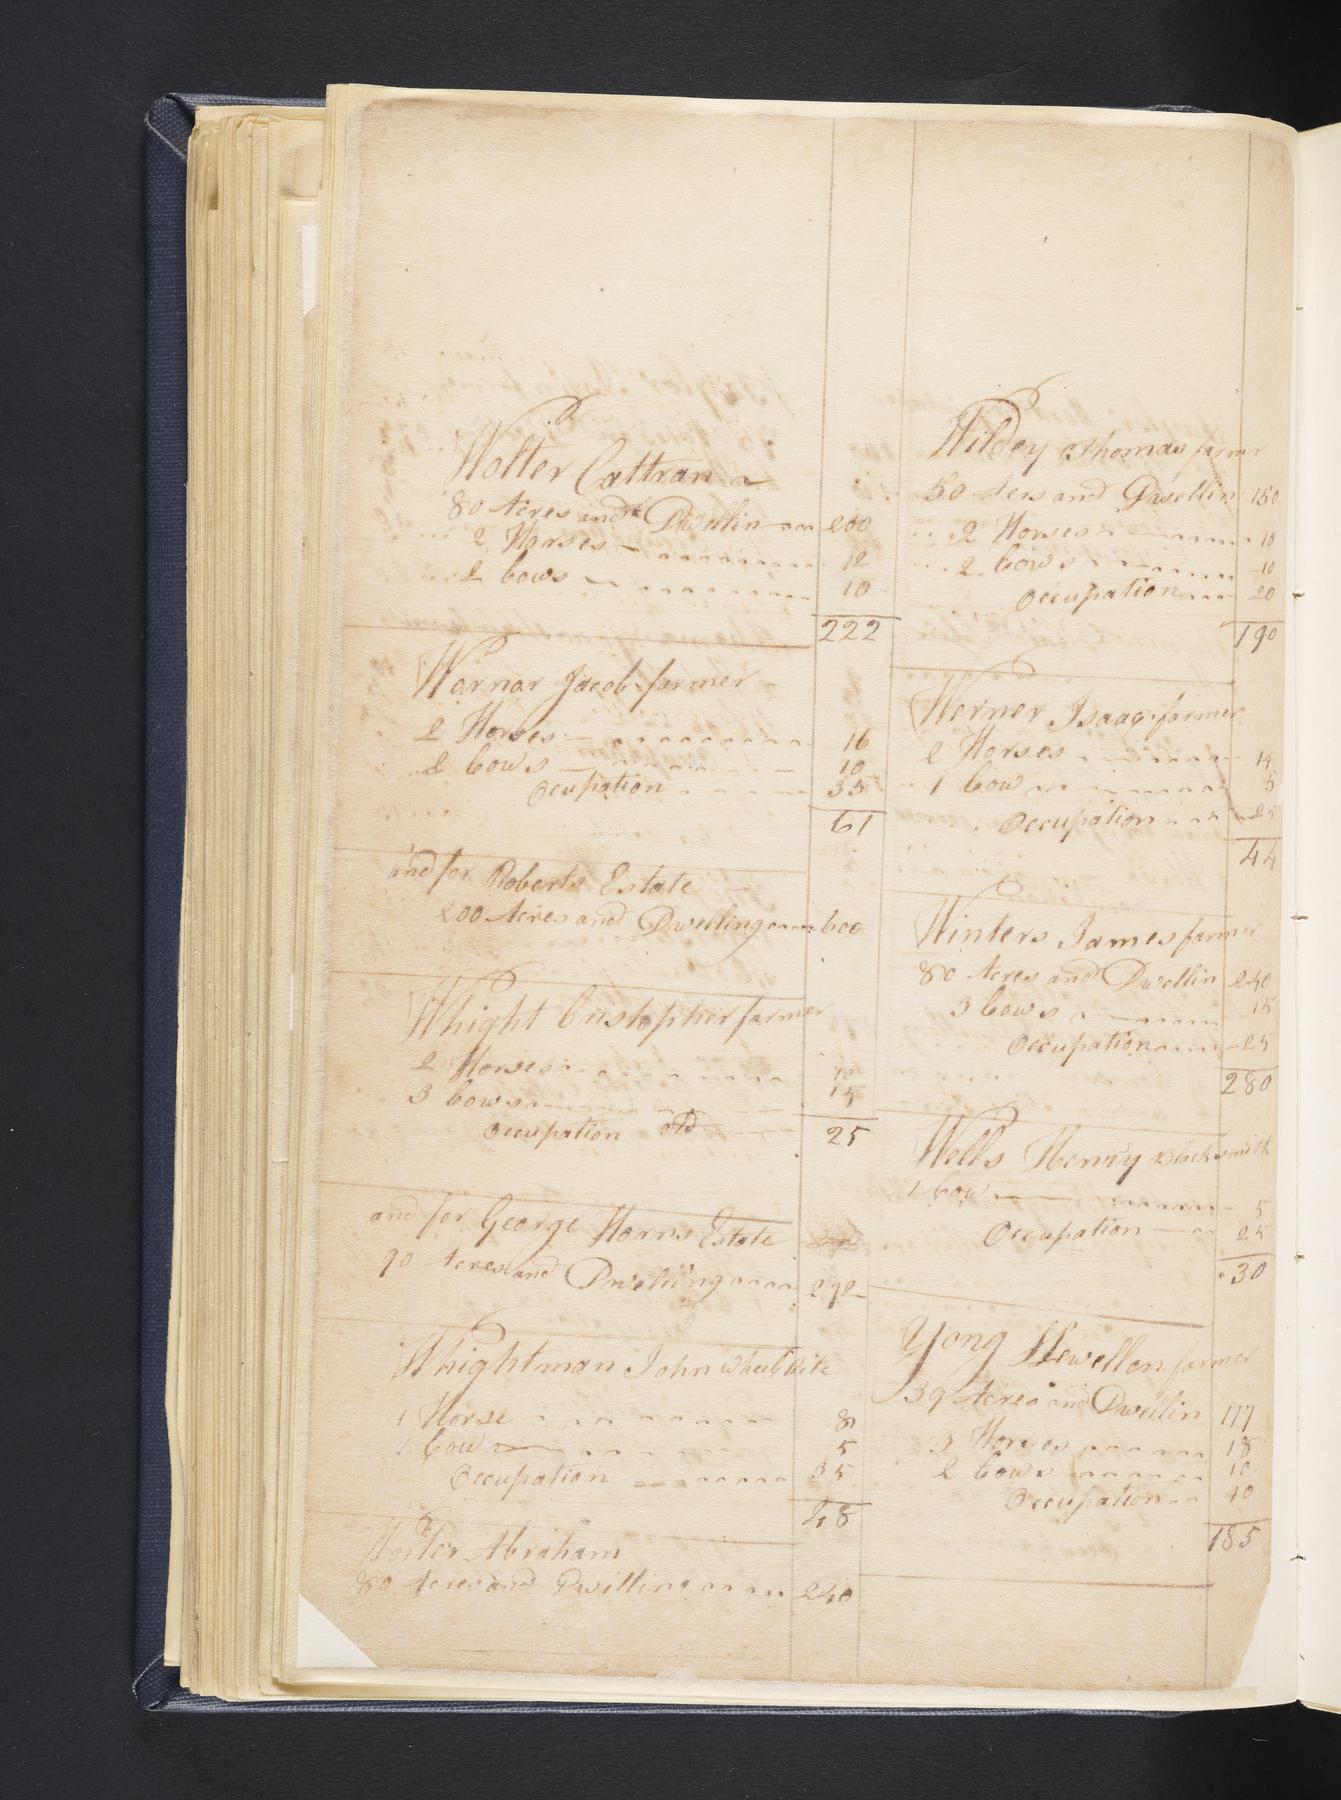 Wolter Cattran
80 Acres and Dwellin 200
2 Horses 12
2 Cows 10
222
Warnar Jacob farmer
2 Horses 16
2 Cows 10
Ocupation 35
61
and for Roberts Estate
200 Acres and Dwelling 600
Whight Cristopher farmer
2 Horses 10
3 Cows 15
Occupation old
25
and for George Horns Estate
90 Acres and Dwelling 272
Whightman John Wheelrite
1 Horse 8
1 Cow 5
Occupation 35
48
Wolter Abraham
80 Acres and Dwilling 240
Wildey Thomas farmer
50 Acrs and Dwellin 150
2 Horses 10
2 Cows 10
Occupation 20
190
Werner Isaac farmer
2 Horses 14
1 Cow 5
Occupation 25
44
Winters James farmer
80 Acres and Dwellin 240
3 Cows 15
Occupation 25
280
Wells Henry Blacksmith
1 Cow 5
Occupation 25
30
Yong Llewellen farmer
39 Acres and Dwellin 117
3 Horses 18
2 Cows 10
Occupation 40
185